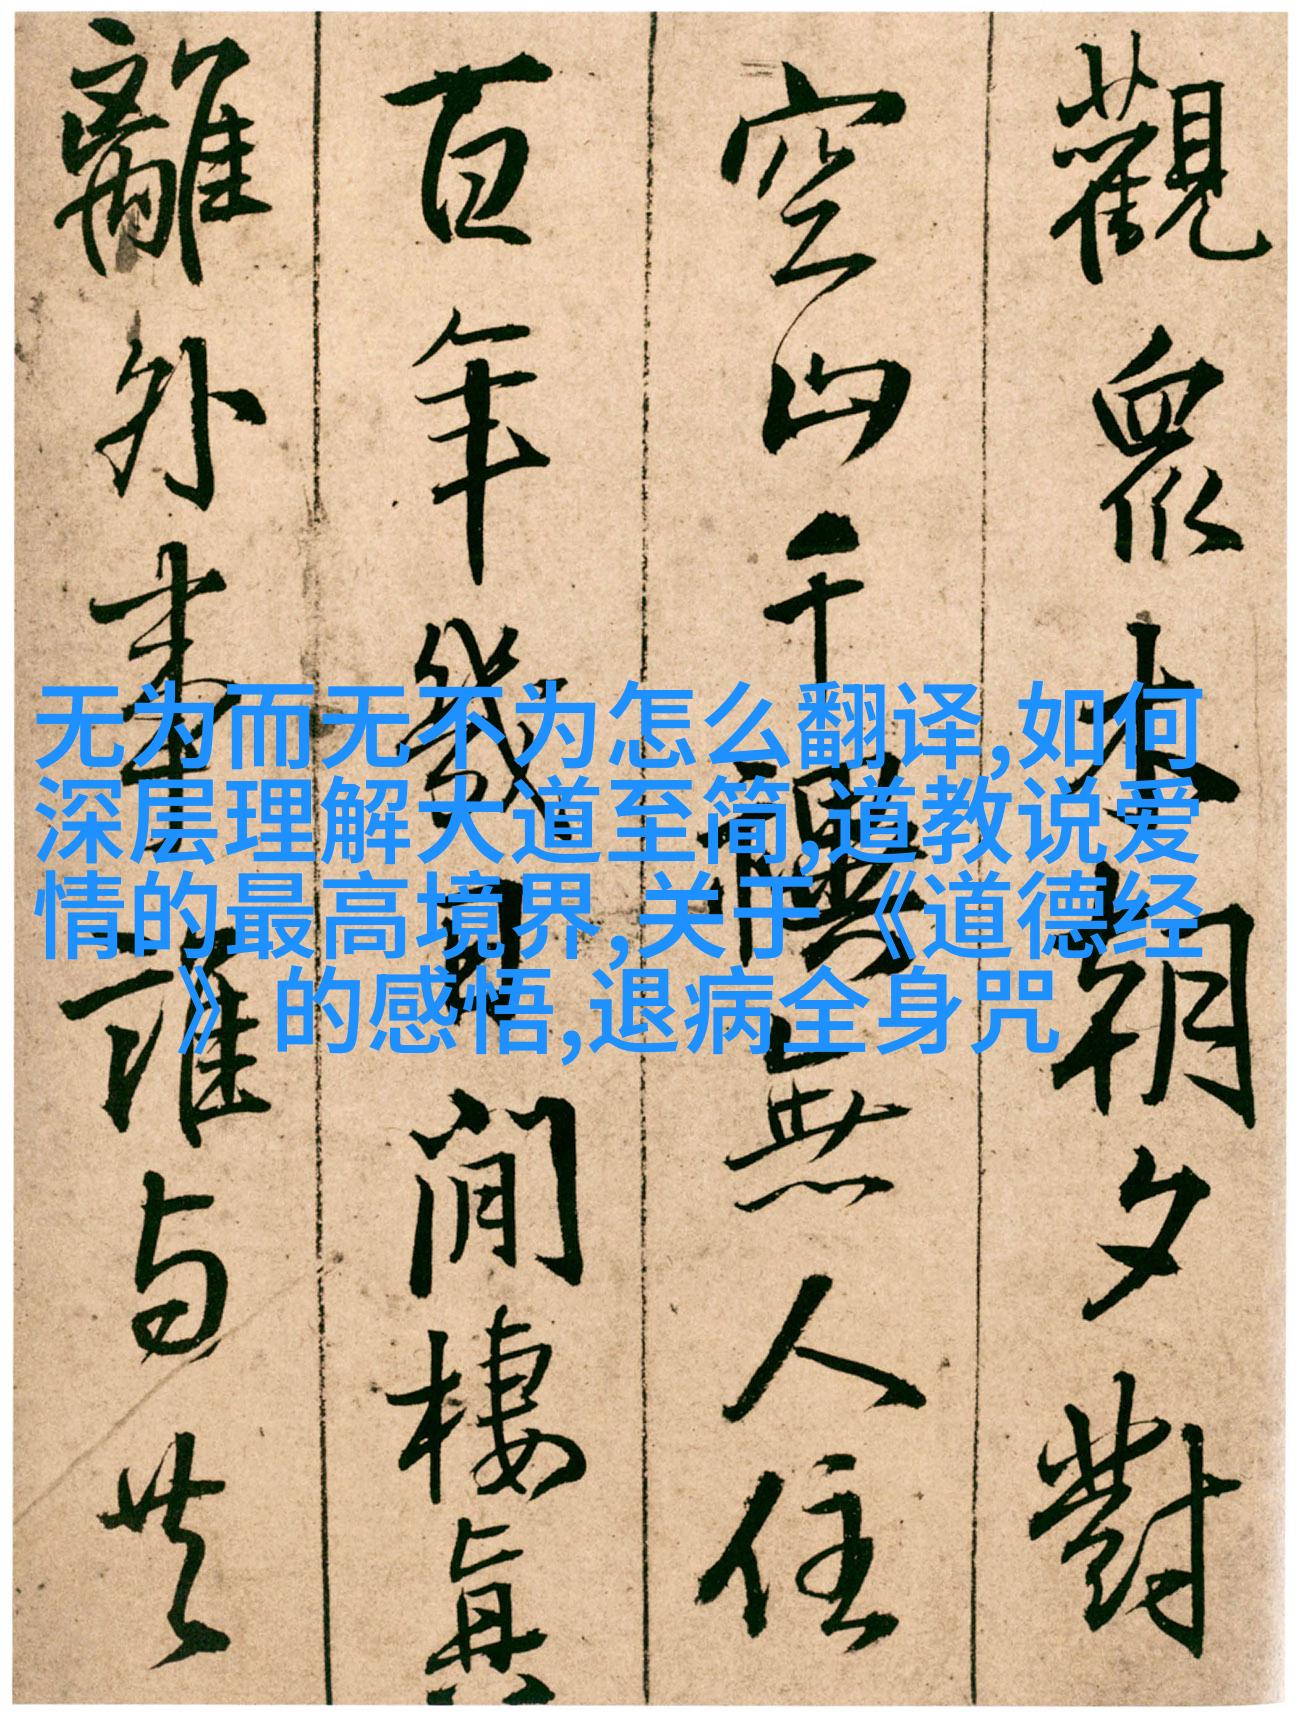 觀衆木朝夕對
空山千襈無人住
百年幾見閒棲真
離外事誰与共
无为而无不为怎么翻译,如何
深层理解大道至简,道教说爱
情的最高境界,关于《道德经
》的感悟,退病全身咒